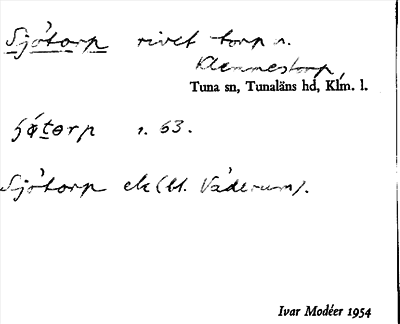 Sjötorp rivet torp u.
Klemmestorp,
Tuna sn, Tunaläns hd, Klm. l.
s. 63.
Sjötorp ek (bl. Väderum).
Ivar Modéer 1954